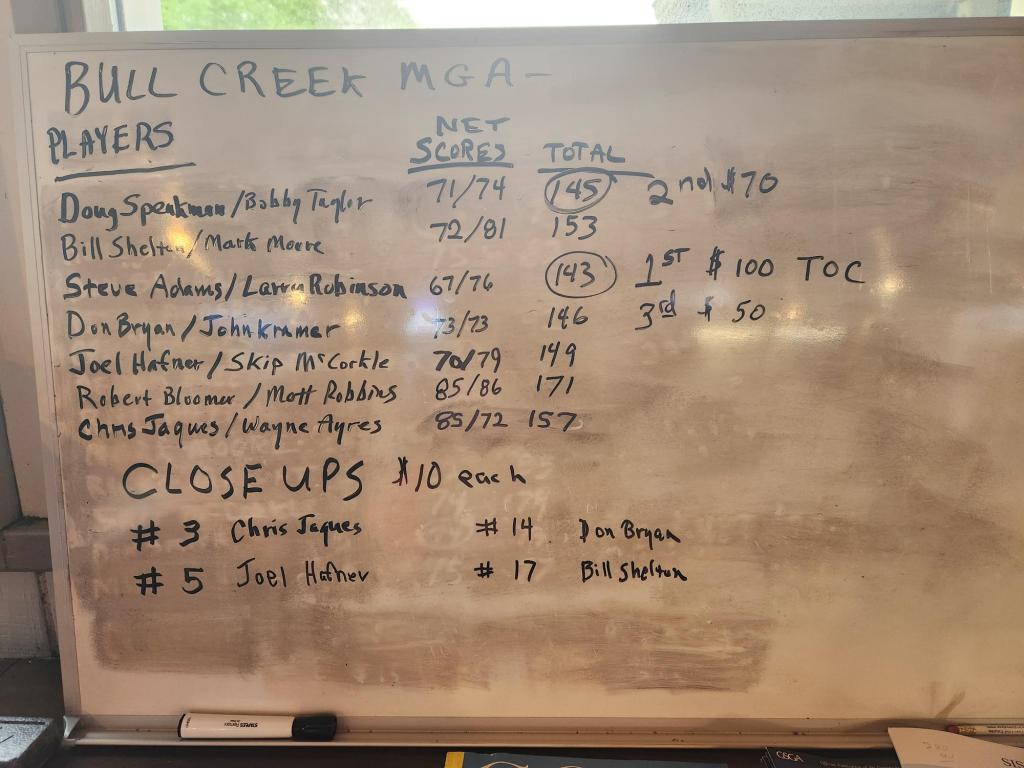 BULL CREEK MGA -
PLAYERS NET SCORES TOTAL
Doug Speakman/Bobby Taylor 71/74 145 2nd $70
Bill Shelton/Mark Moore 72/81 153
Steve Adams/Larry Robinson 67/76 143 1ST $100 TOC
Don Bryan/John Kramer 73/73 146 3rd $50
Joel Hafner/Skip McCorkle 70/79 149
Robert Bloomer/Matt Robbins 85/86 171
Chris Jaques/Wayne Ayres 85/72 157
CLOSE UPS $10 each
#3 Chris Jaques #14 Don Bryan
#5 Joel Hafner #17 Bill Shelton
STAPLES